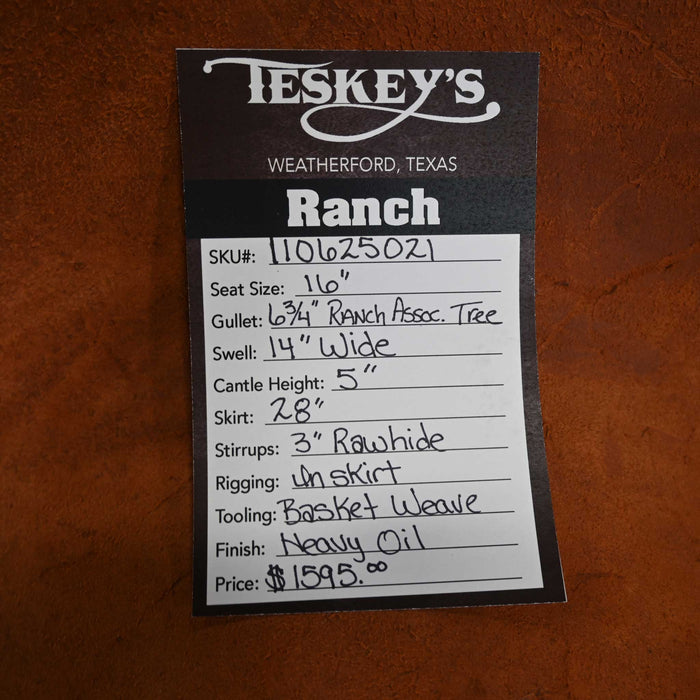 TESKEY'S
WEATHERFORD, TEXAS
Ranch
SKU#: 110625021
Seat Size: 16"
Gullet: 6 3/4" Ranch Assoc. Tree
Swell: 14" Wide
Cantle Height: 5"
Skirt: 28"
Stirrups: 3" Rawhide
Rigging: In skirt
Tooling: Basket Weave
Finish: Heavy Oil
Price: $1595.00